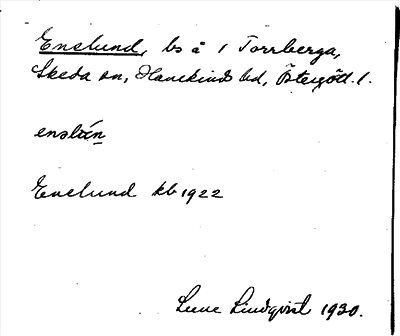 Enslund, bs å 1 Torrberga,
Skeda sn, Hanekinds hd, Östergötl. l.
enslún
Enelund kb 1922
Sune Lindqvist 1930.